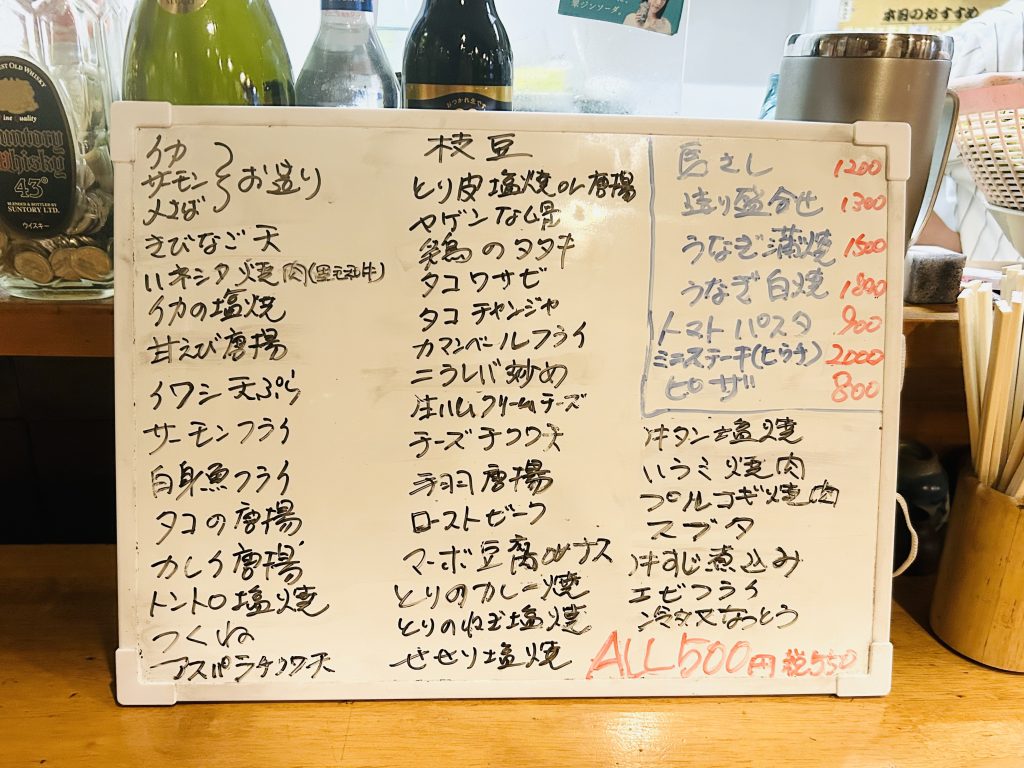 EST OLD WHISKY
Fine Quality
Suntory
Whisky
43°
BLENDED & BOTTLED BY
SUNTORY LTD.
ウイスキー
本日のおすすめ
イカ
サーモン お造り
〆さば
きびなご天
ハネシタ焼肉(黒毛和牛)
イカの塩焼
甘えび唐揚
イワシ天ぷら
サーモンフライ
白身魚フライ
タコの唐揚
カレイ唐揚
トントロ塩焼
つくね
アスパラチクワ天
枝豆
とり皮塩焼or唐揚
ヤゲンなん骨
鶏のタタキ
タコワサビ
タコチャンジャ
カマンベールフライ
ニラレバ炒め
生ハムクリームチーズ
チーズチクワ天
手羽唐揚
ローストビーフ
マーボ豆腐orナス
とりのカレー焼
とりのねぎ塩焼
せせり塩焼
馬さし 1200
造り盛合せ 1300
うなぎ蒲焼 1500
うなぎ白焼 1800
トマトパスタ 900
ミニステーキ(ヒウチ) 2000
ピザ 800
牛タン塩焼
ハラミ焼肉
プルコギ焼肉
スブタ
牛すじ煮込み
エビフライ
冷奴又なっとう
ALL 500円 税550